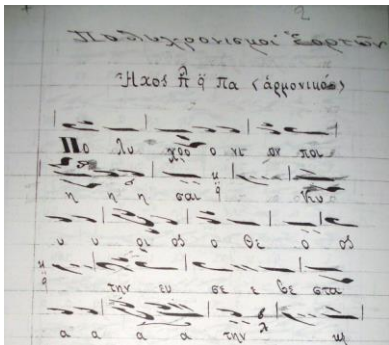 2
Πολυχρονισμοί Ἑορτῶν
Ἦχος πα (ἁρμονικός)
Πο λυ χρο ο νι ον ποι
η η η σαι Κυ
υ υ ρι ος ο Θε ο ος
την ευ σε ε βε στα
α α α α την